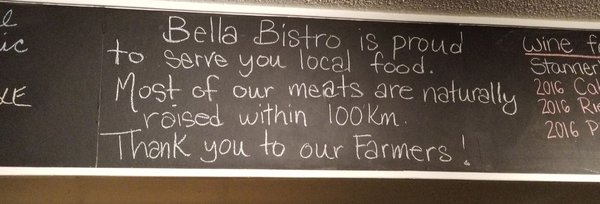 ic
Bella Bistro is proud
to serve you local food.
Most of our meats are naturally
raised within 100Km.
Thank you to our Farmers!
Wine
Stanner
2016
2016
2016